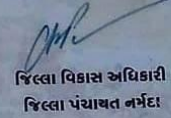 જિલ્લા વિકાસ અધિકારી
જિલ્લા પંચાયત નર્મદા